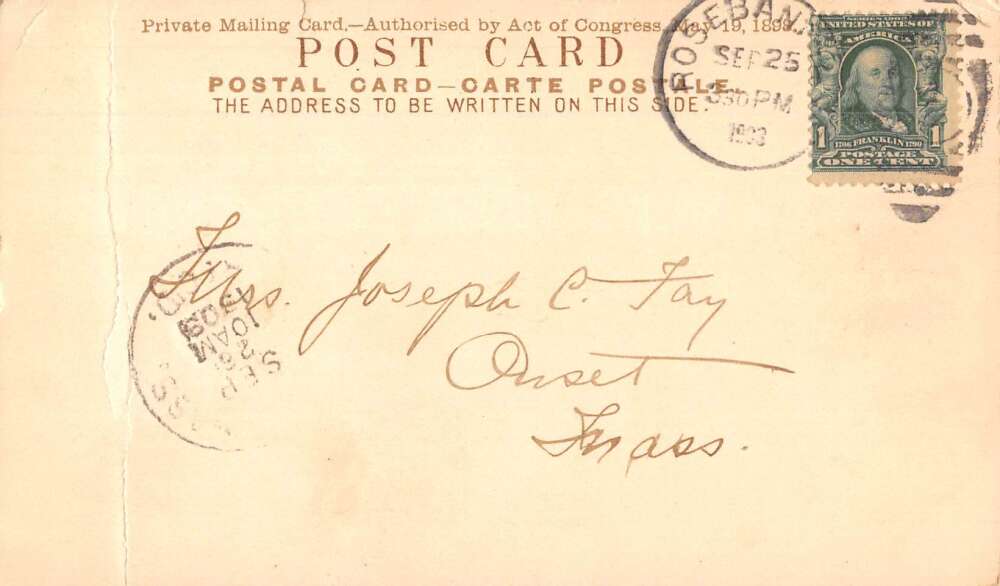 Private Mailing Card.—Authorised by Act of Congress May 19, 1898.
POST CARD
POSTAL CARD—CARTE POSTALE.
THE ADDRESS TO BE WRITTEN ON THIS SIDE.
ROSEBANK
SEP 25
330 PM
1903
SERIES 1902
UNITED STATES OF
AMERICA
1706 FRANKLIN 1790
POSTAGE
1 ONE CENT 1
Mrs. Joseph C. Fay
Onset
Mass.
SEP
26
10 AM
MASS.